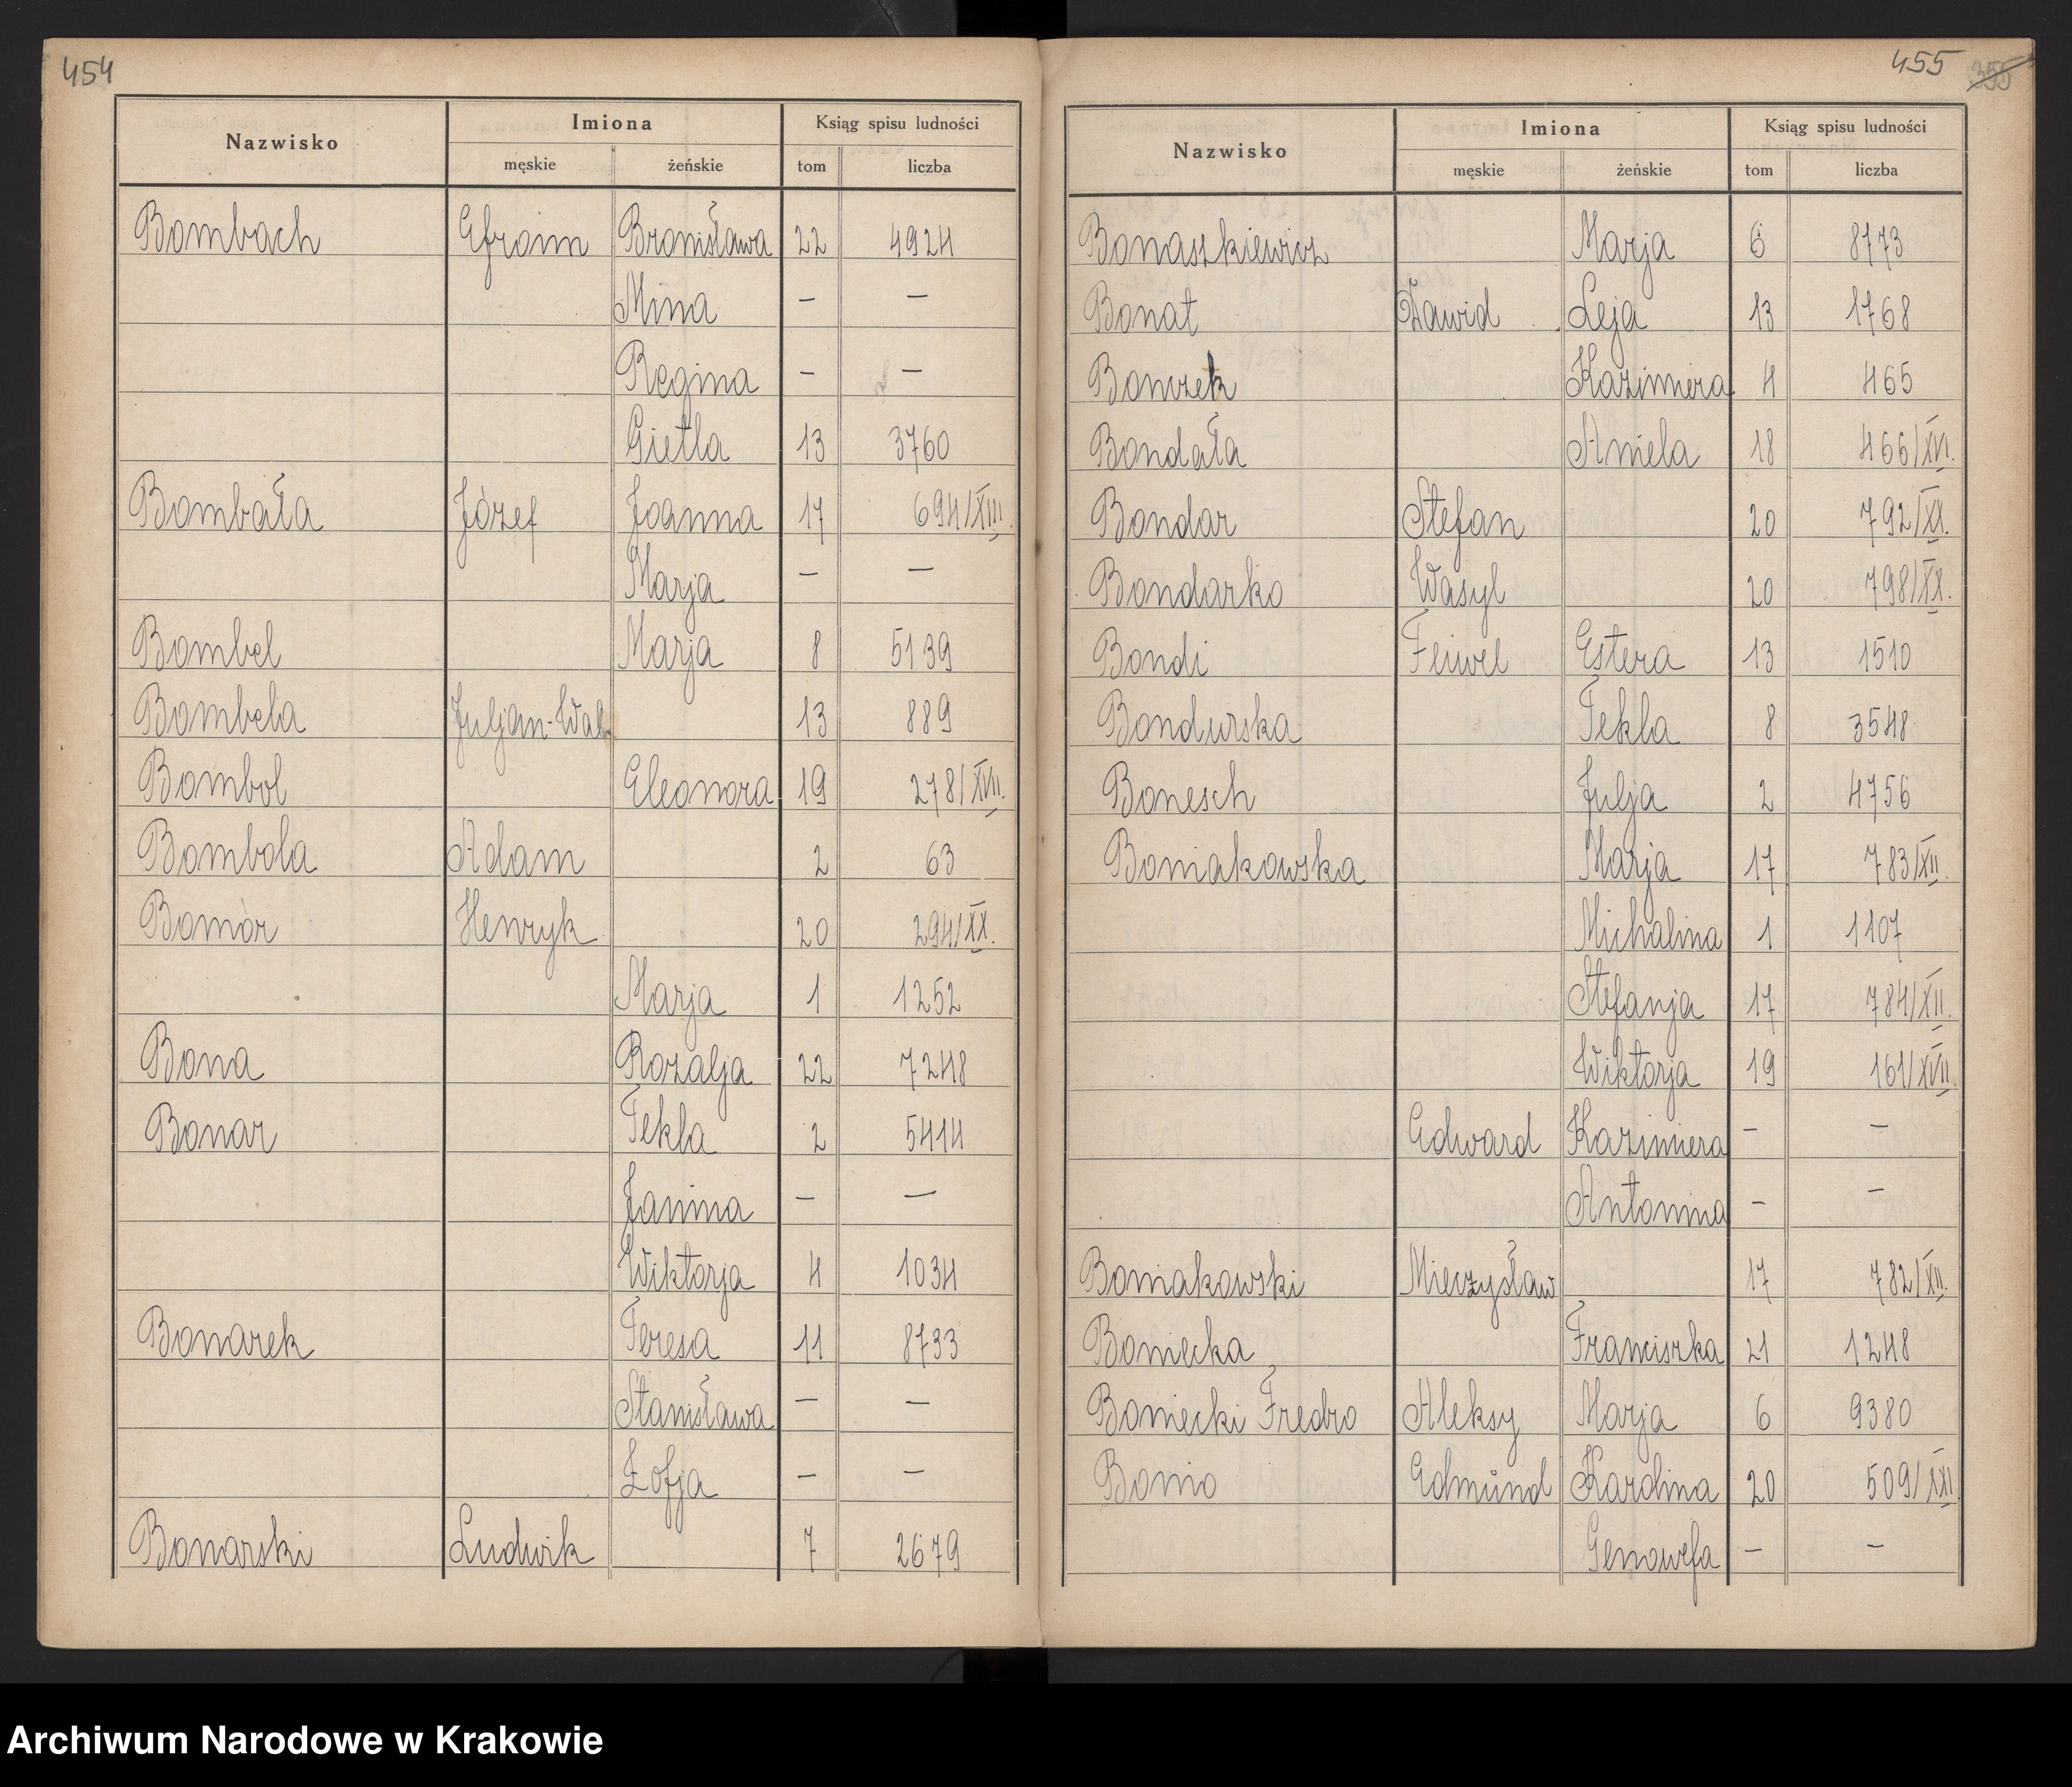 454
Nazwisko Imiona Ksiąg spisu ludności
męskie żeńskie tom liczba
Bombach Efroim Bronisława 22 4924
Mina — —
Regina — —
Gietla 13 3760
Bombała Józef Joanna 17 694/XIII.
Marja — —
Bombel Marja 8 5139
Bombela Juljan-Wal 13 889
Bombol Eleonora 19 278/XVII.
Bombola Adam 2 63
Bomór Henryk 20 294/XX.
Marja 1 1252
Bona Rozalja 22 7248
Bonar Tekla 2 5414
Janina — —
Wiktorja 4 1034
Bonarek Teresa 11 8733
Stanisława — —
Zofja — —
Bonarski Ludwik 7 2679
455 355
Nazwisko Imiona Ksiąg spisu ludności
męskie żeńskie tom liczba
Bonaszkiewicz Marja 6 8773
Bonat Dawid Leja 13 1768
Bonczek Kazimiera 4 465
Bondała Aniela 18 466/XVI.
Bondar Stefan 20 792/XX.
Bondarko Wasyl 20 798/XX.
Bondi Feiwel Estera 13 1510
Bondurska Tekla 8 3548
Bonesch Julja 2 4756
Boniakowska Marja 17 783/XII.
Michalina 1 1107
Stefanja 17 784/XII.
Wiktorja 19 161/XVII.
Edward Kazimiera — —
Antonina — —
Boniakowski Mieczysław 17 782/XII.
Boniecka Franciszka 21 1248
Boniecki Fredro Aleksy Marja 6 9380
Bonio Edmund Karolina 20 509/XXI
Genowefa — —
Archiwum Narodowe w Krakowie